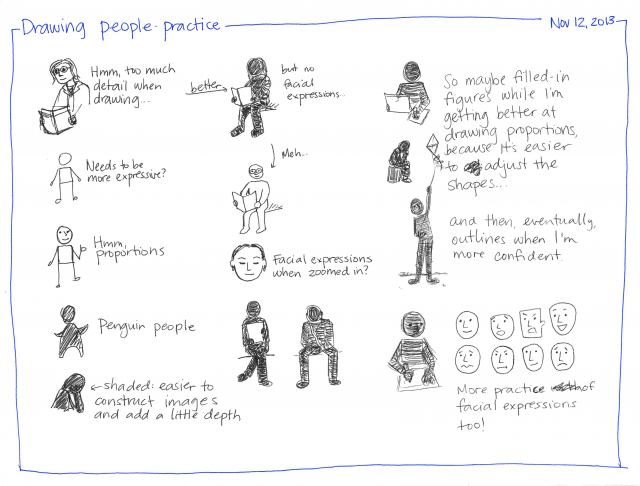 Drawing people - practice
Nov 12, 2013
Hmm, too much
detail when
drawing...
better
but no
facial
expressions...
Meh...
Needs to be
more expressive?
Hmm,
proportions
Facial expressions
when zoomed in?
Penguin people
←shaded: easier to
construct images
and add a little depth
So maybe filled-in
figures while I'm
getting better at
drawing proportions,
because it's easier
to adjust the
shapes...
and then, eventually,
outlines when I'm
more confident.
More practice of
facial expressions
too!